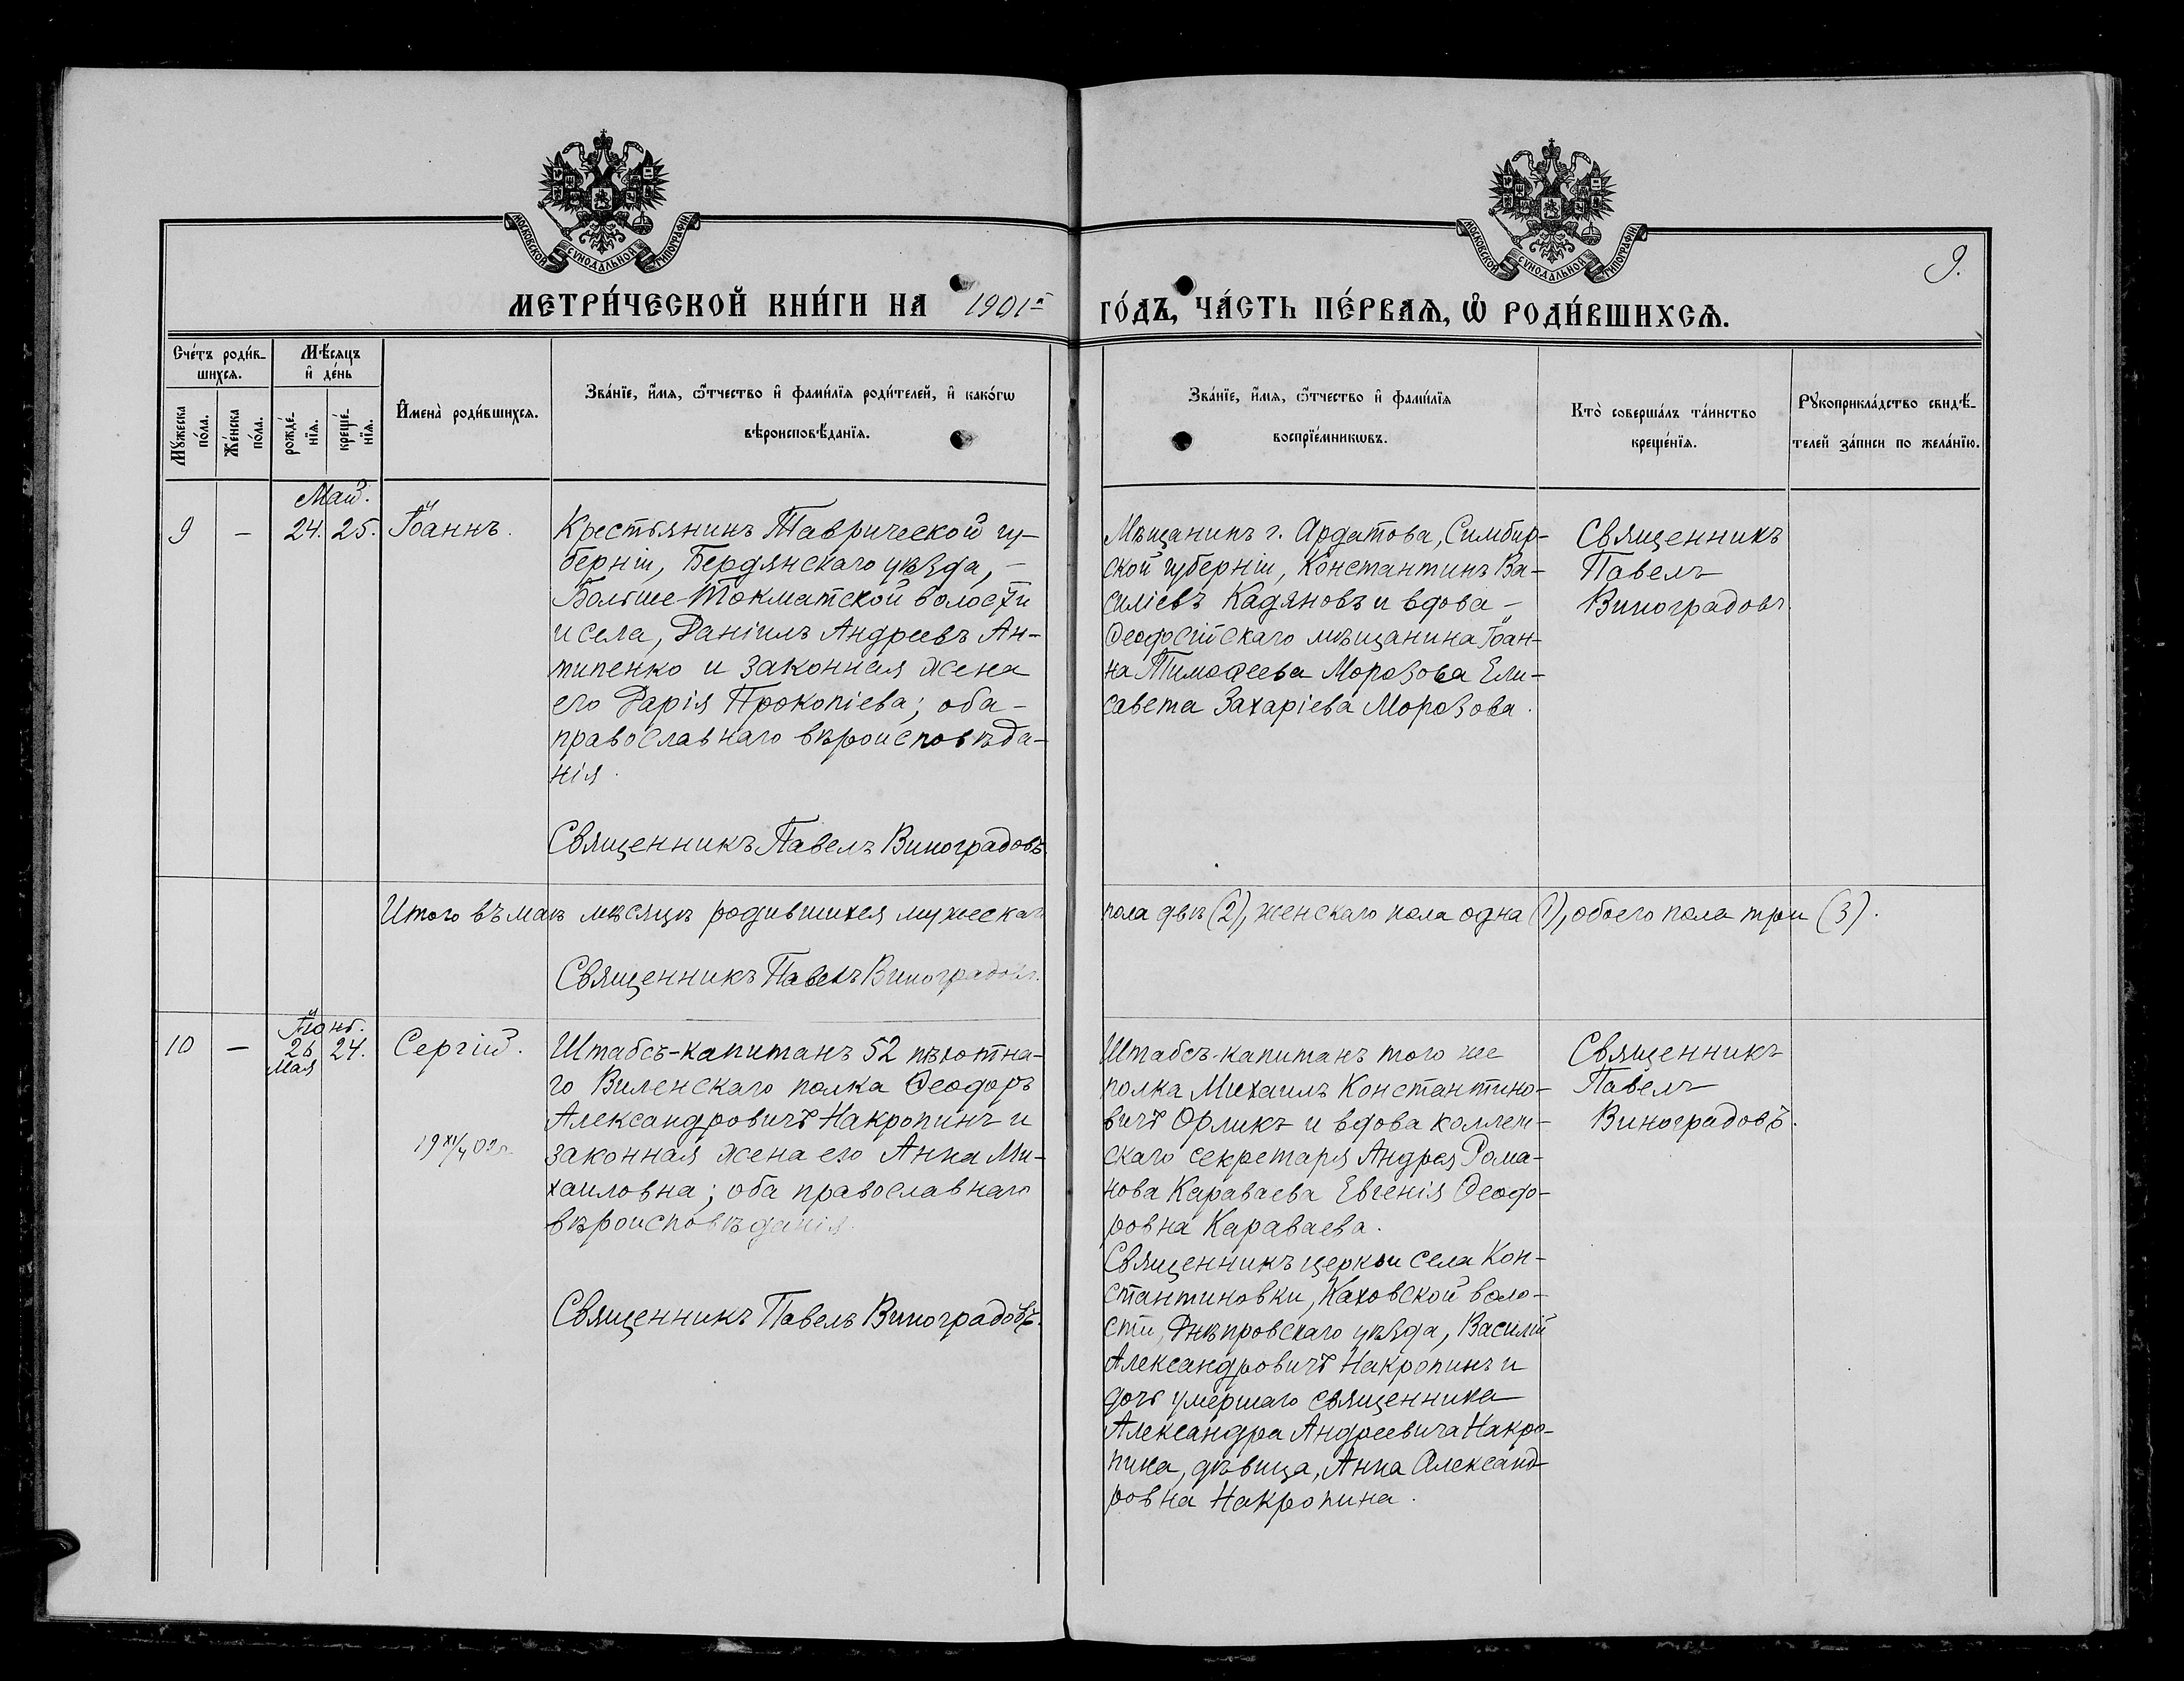 МОСКОВСКОЙ СѴНОДАЛЬНОЙ ТИПОГРАФІИ
МОСКОВСКОЙ СѴНОДАЛЬНОЙ ТИПОГРАФІИ
9.
МЕТРИ́ЧЕСКОЙ КНИ́ГИ НА 1901-й ГО́ДЪ, ЧА́СТЬ ПЕ́РВАѦ, Ѡ҆ РОДИ́ВШИХСѦ.
Сче́тъ роди́в-
шихсѧ.
Мѣ́сѧцъ
и҆ де́нь
Мꙋ́жеска
по́ла.
Же́нска
по́ла.
рожде́-
нїѧ.
креще́-
нїѧ.
И҆мена̀ роди́вшихсѧ.
Зва́нїе, и҆́мѧ, ѻ҆́тчество и҆ фами́лїѧ роди́телей, и҆ како́гѡ
вѣроисповѣ́данїѧ.
Зва́нїе, и҆́мѧ, ѻ҆́тчество и҆ фами́лїѧ
воспрїе́мникѡвъ.
Кто̀ соверша́лъ та́инство
креще́нїѧ.
Рꙋкоприкла́дство свидѣ́-
телей за́писи по жела́нїю.
Май.
9 — 24. 25. Іоаннъ.
Крестьянинъ Таврической гу-
берніи, Бердянскаго уѣзда, —
Больше-Токматской волости
и села, Даніилъ Андреевъ Ан-
типенко и законная жена
его Дарія Прокопіева; оба —
православнаго вѣроисповѣда-
нія.
Священникъ Павелъ Виноградовъ.
Мѣщанинъ г. Ардатова, Симбир-
ской губерніи, Константинъ Ва-
силіевъ Кадяновъ и вдова —
Ѳеодосійскаго мѣщанина Іоан-
на Тимоѳеева Морозова Ели-
савета Захаріева Морозова.
Священникъ
Павелъ
Виноградовъ.
Итого въ маѣ мѣсяцѣ родившихся мужескаго пола двѣ (2), женскаго пола одна (1), обоего пола три (3).
Священникъ Павелъ Виноградовъ.
Іюнь.
10 — 26 24. Сергій.
Мая
Штабсъ-капитанъ 52 пѣхотна-
го Виленскаго полка Ѳеодоръ
Александровичъ Накропинъ и
законная жена его Анна Ми-
хаиловна; оба православнаго
вѣроисповѣданія.
Священникъ Павелъ Виноградовъ.
Штабсъ-капитанъ того же
полка Михаилъ Константино-
вичъ Орликъ и вдова коллеж-
скаго секретаря Андрея Рома-
нова Караваева Евгенія Ѳеодо-
ровна Караваева.
Священникъ церкви села Кон-
стантиновки, Каховской воло-
сти, Днѣпровскаго уѣзда, Василій
Александровичъ Накропинъ и
дочь умершаго священника
Александра Андреевича Накро-
пина, дѣвица, Анна Александ-
ровна Накропина.
Священникъ
Павелъ
Виноградовъ.